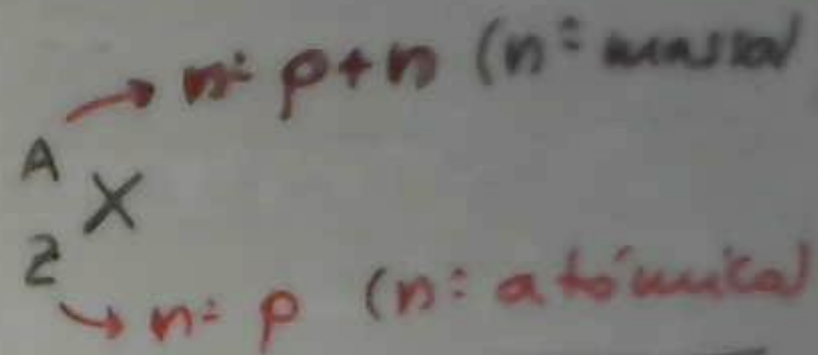 nº p+n (nº massa)
A
X
Z
nº p (nº atómico)